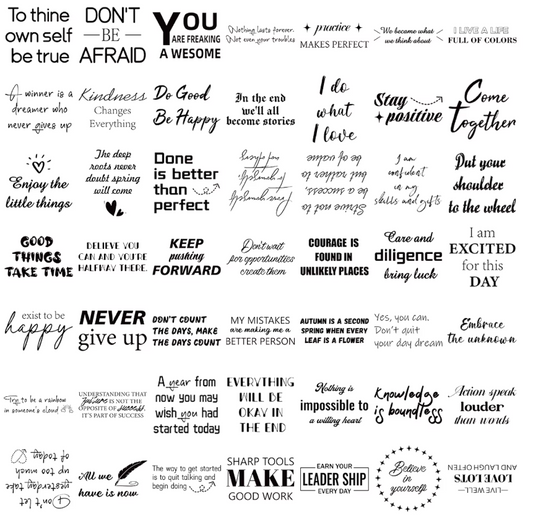 To thine
own self
be true
DON'T
BE
AFRAID
YOU
ARE FREAKING
AWESOME
Nothing lasts forever.
Not even your troubles
practice
MAKES PERFECT
We became what
we think about
I LIVE A LIFE
FULL OF COLORS
A winner is a
dreamer who
never gives up
Kindness
Changes
Everything
Do Good
Be Happy
In the end
we'll all
become stories
I do
what
I love
Stay
positive
Come
Together
Enjoy the
little things
The deep
roots never
doubt spring
will come
Done
is better
than
perfect
Strive not to
be a success,
but rather to
be of value
I am
confident
in my
skills and gifts
Put your
shoulder
to the wheel
GOOD
THINGS
TAKE TIME
BELIEVE YOU
CAN AND YOU'RE
HALFWAY THERE.
KEEP
pushing
FORWARD
Don't wait
for opportunities
create them
COURAGE IS
FOUND IN
UNLIKELY PLACES
Care and
diligence
bring luck
I am
EXCITED
for this
DAY
exist to be
happy
NEVER
give up
DON'T COUNT
THE DAYS, MAKE
THE DAYS COUNT
MY MISTAKES
are making me a
BETTER PERSON
AUTUMN IS A SECOND
SPRING WHEN EVERY
LEAF IS A FLOWER
Yes, you can.
Don't quit
your day dream
Embrace
the unknown
Try to be a rainbow
in someone's cloud
UNDERSTANDING THAT
failure IS NOT THE
OPPOSITE OF success,
IT'S PART OF SUCCESS
A year from
now you may
wish you had
started today
EVERYTHING
WILL BE
OKAY IN
THE END
Nothing is
impossible to
a willing heart
Knowledge
is boundless
Action speak
louder
than words
Don't let
yesterday take
up too much
of today
All we
have is now
The way to get started
is to quit talking and
begin doing
SHARP TOOLS
MAKE
GOOD WORK
EARN YOUR
LEADER SHIP
EVERY DAY
Believe
in
yourself
LIVE WELL
LOVE LOTS
AND LAUGH OFTEN